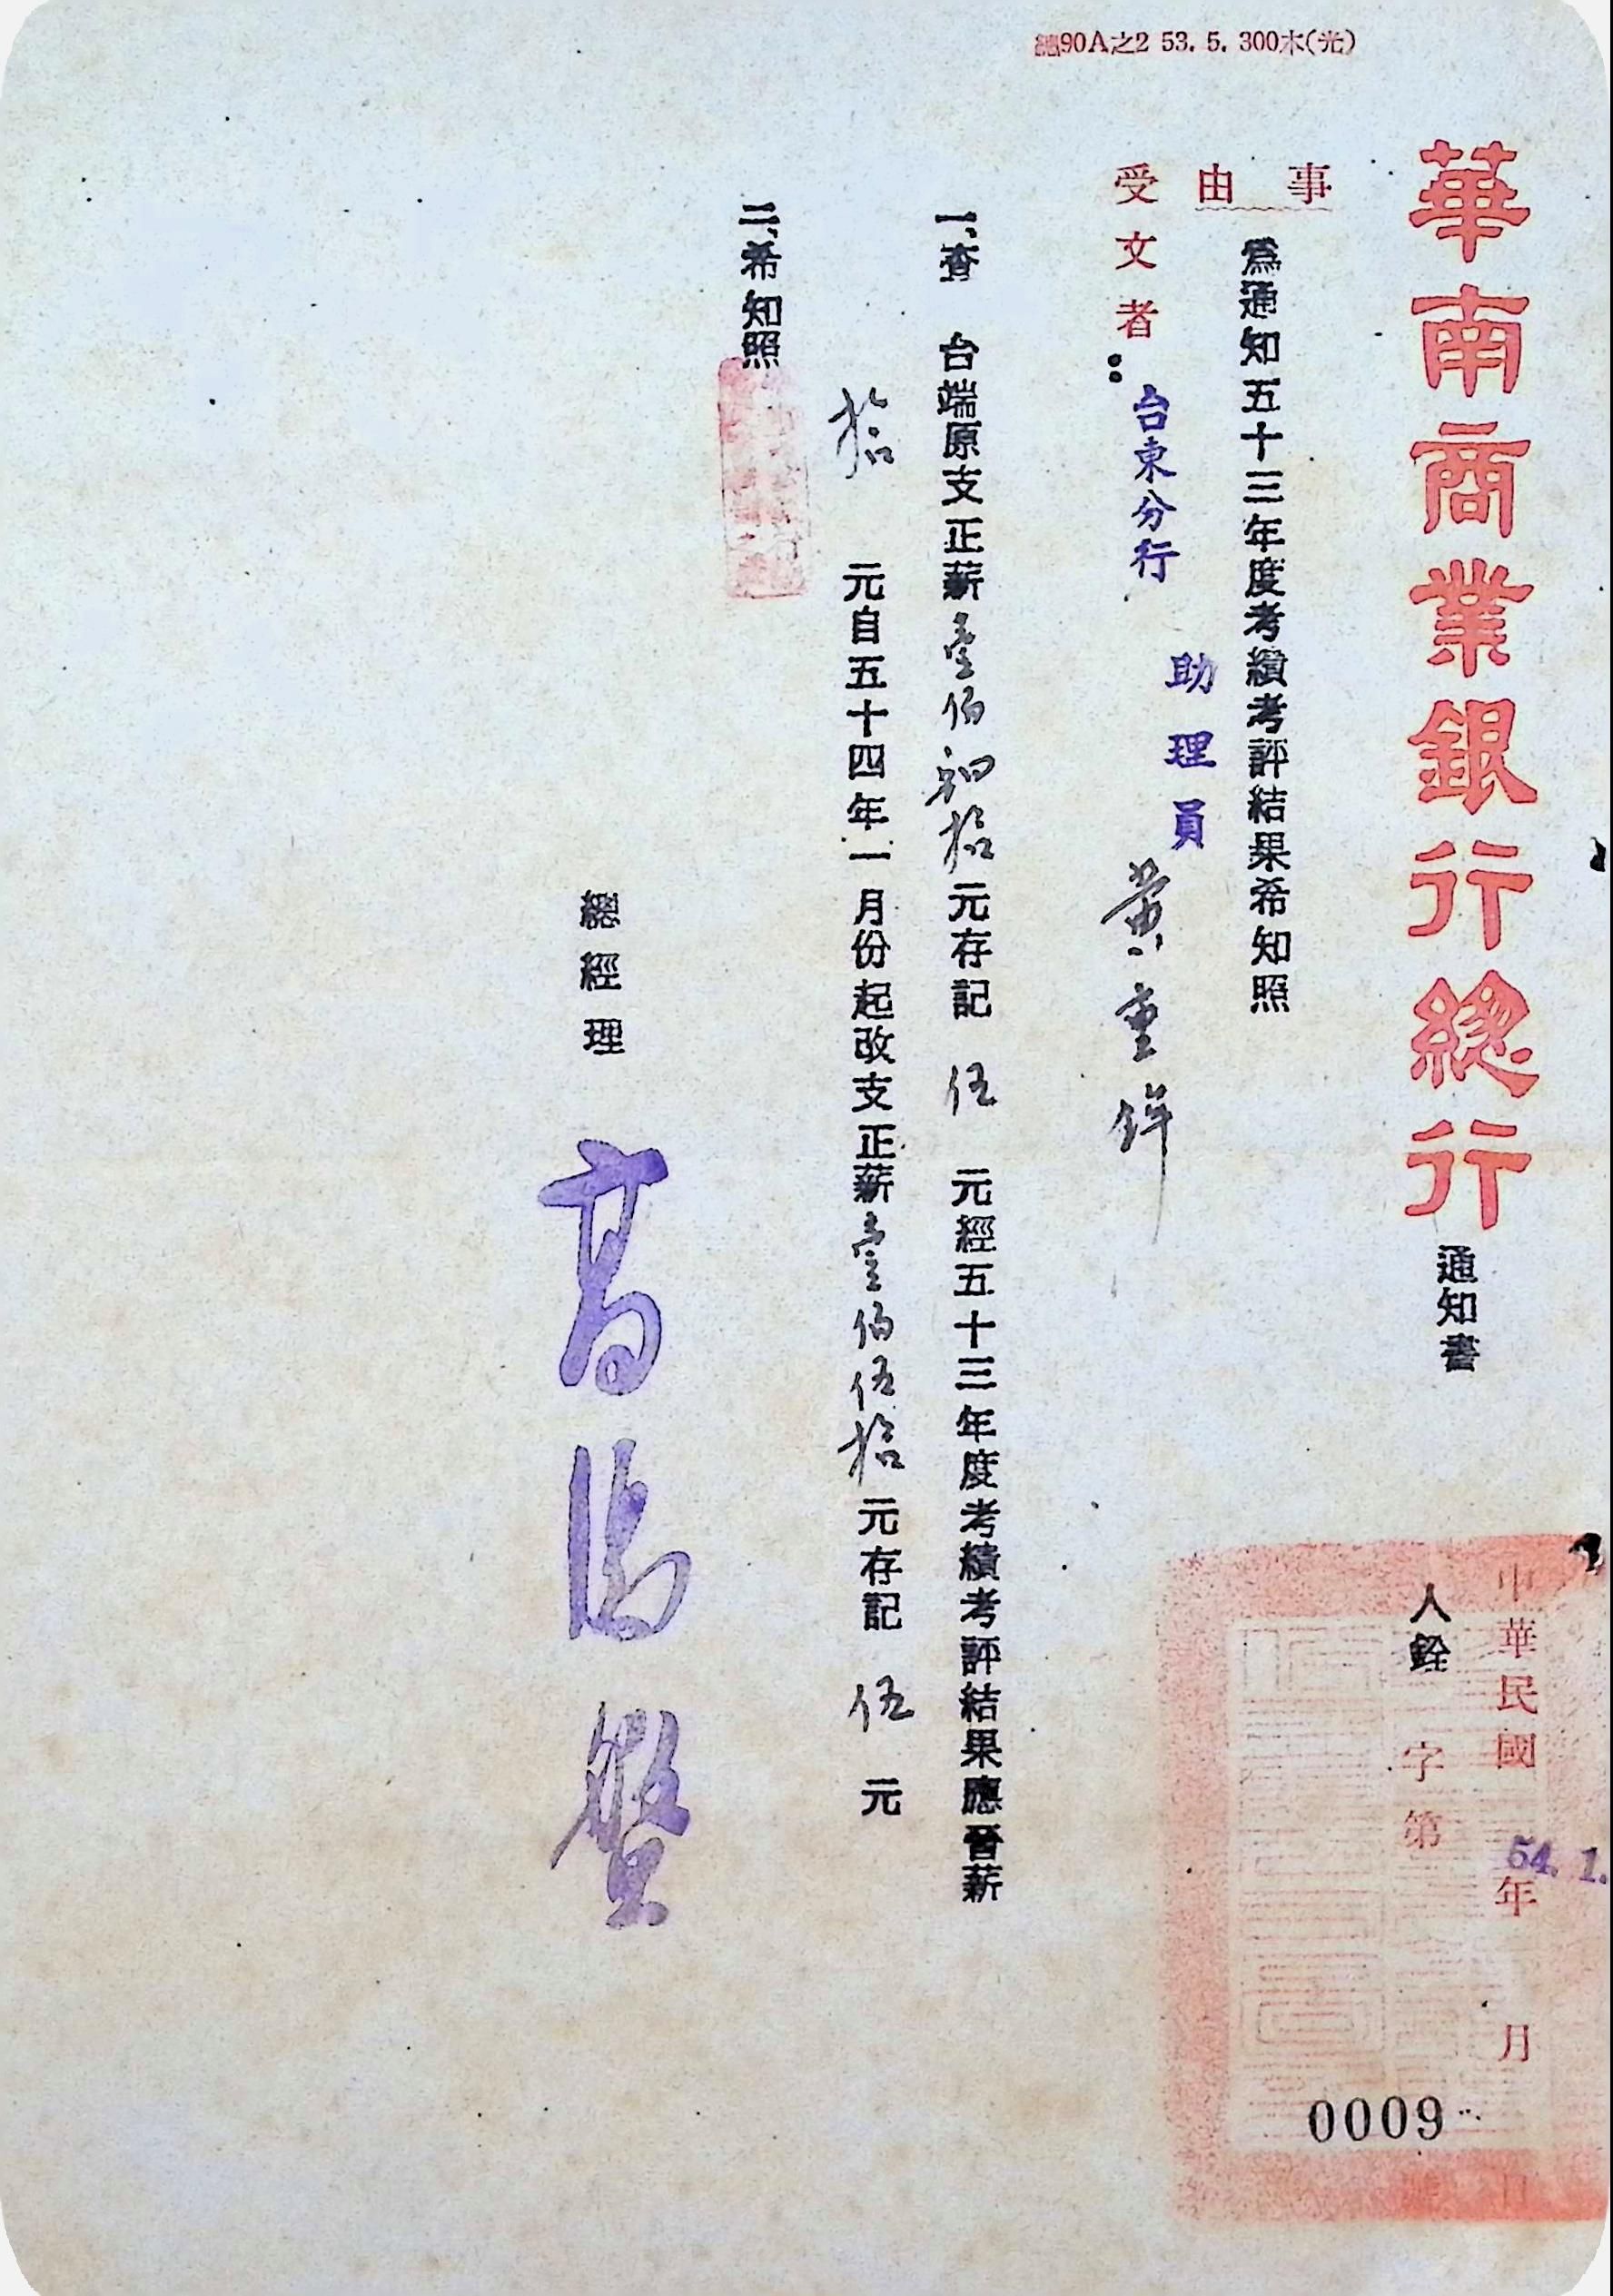 總90A之2 53. 5. 300本(光)
華南商業銀行總行通知書
中華民國 年 月 日
54. 1.
人銓 字第 0009 號
事由
為通知五十三年度考績考評結果希知照
受文者：台東分行 助理員 黃重鉾
一、查 台端原支正薪壹佰肆拾元存記 伍 元經五十三年度考績考評結果應晉薪
拾 元自五十四年一月份起改支正薪壹佰伍拾元存記 伍 元
二、希知照
總經理 高湯盤